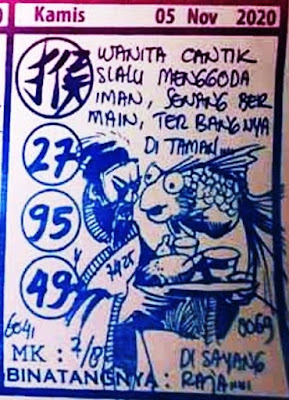 Kamis 05 Nov 2020
猴
WANITA CANTIK
SLALU MENGGODA
IMAN, SENANG BER
MAIN, TERBANGNYA
DI TAMAN......
27
95
49
7425
6041
0069
MK : 2/8
DI SAYANG
BINATANGNYA : RAJA.....